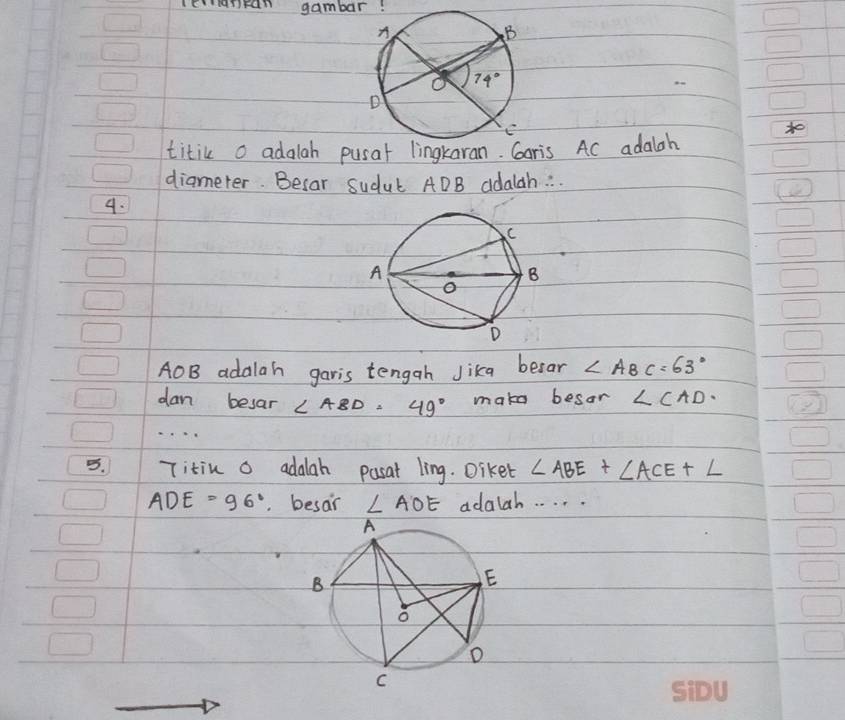 gambar !
A
B
O
74°
D
C
titik O adalah pusat lingkaran. Garis AC adalah
diameter. Besar Sudut ADB adalah ...
4.
C
A
B
O
D
AOB adalah garis tengah Jika besar ∠ ABC = 63°
dan besar ∠ ABD = 49° maka besar ∠ CAD.
....
5. Titik O adalah pasat ling. Diket ∠ABE + ∠ACE + ∠
ADE = 96°. besar ∠ AOE adalah .....
A
B
E
O
D
C
SiDU